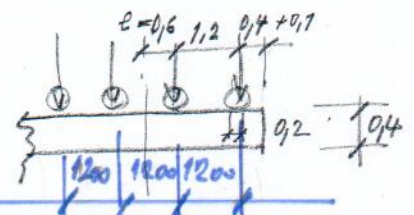 l=0,6 1,2 0,4 +0,1
0,2 0,4
1200 1200 1200